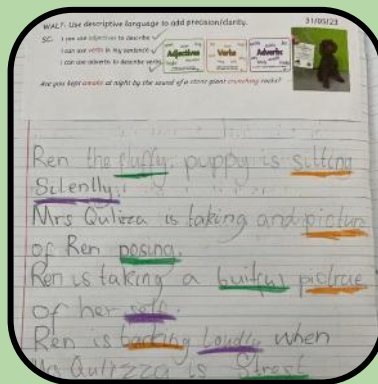 WALT: Use descriptive language to add precision/clarity.
31/03/23
SC: I can use adjectives to describe
I can use verbs in my sentence
I can use adverbs to describe verbs
Adjectives
Verbs
Adverbs
Are you kept awake at night by the sound of a stone giant crunching rocks?
Ren the fluffy puppy is sitting
Silently.
Mrs Qulizza is taking and pictur
of Ren posing.
Ren is taking a buitful pictrue
of her self
Ren is barking Loudly when
Mrs Qulizza is Strest